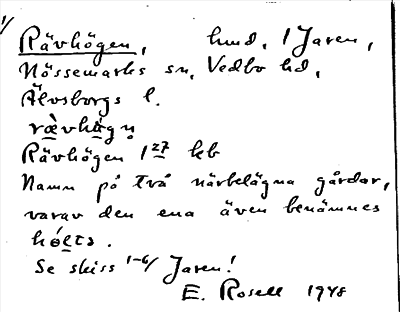 1/
Rävhögen, hmd. 1 Jaren,
Nössemarks sn, Vedbo hd,
Älvsborgs l.
rævhøgn̥
Rävhögen 1 27 kb
Namn på två närbelägna gårdar,
varav den ena även benämnes
hólts.
Se skiss 1-6/ Jaren!
E. Rosell 1948